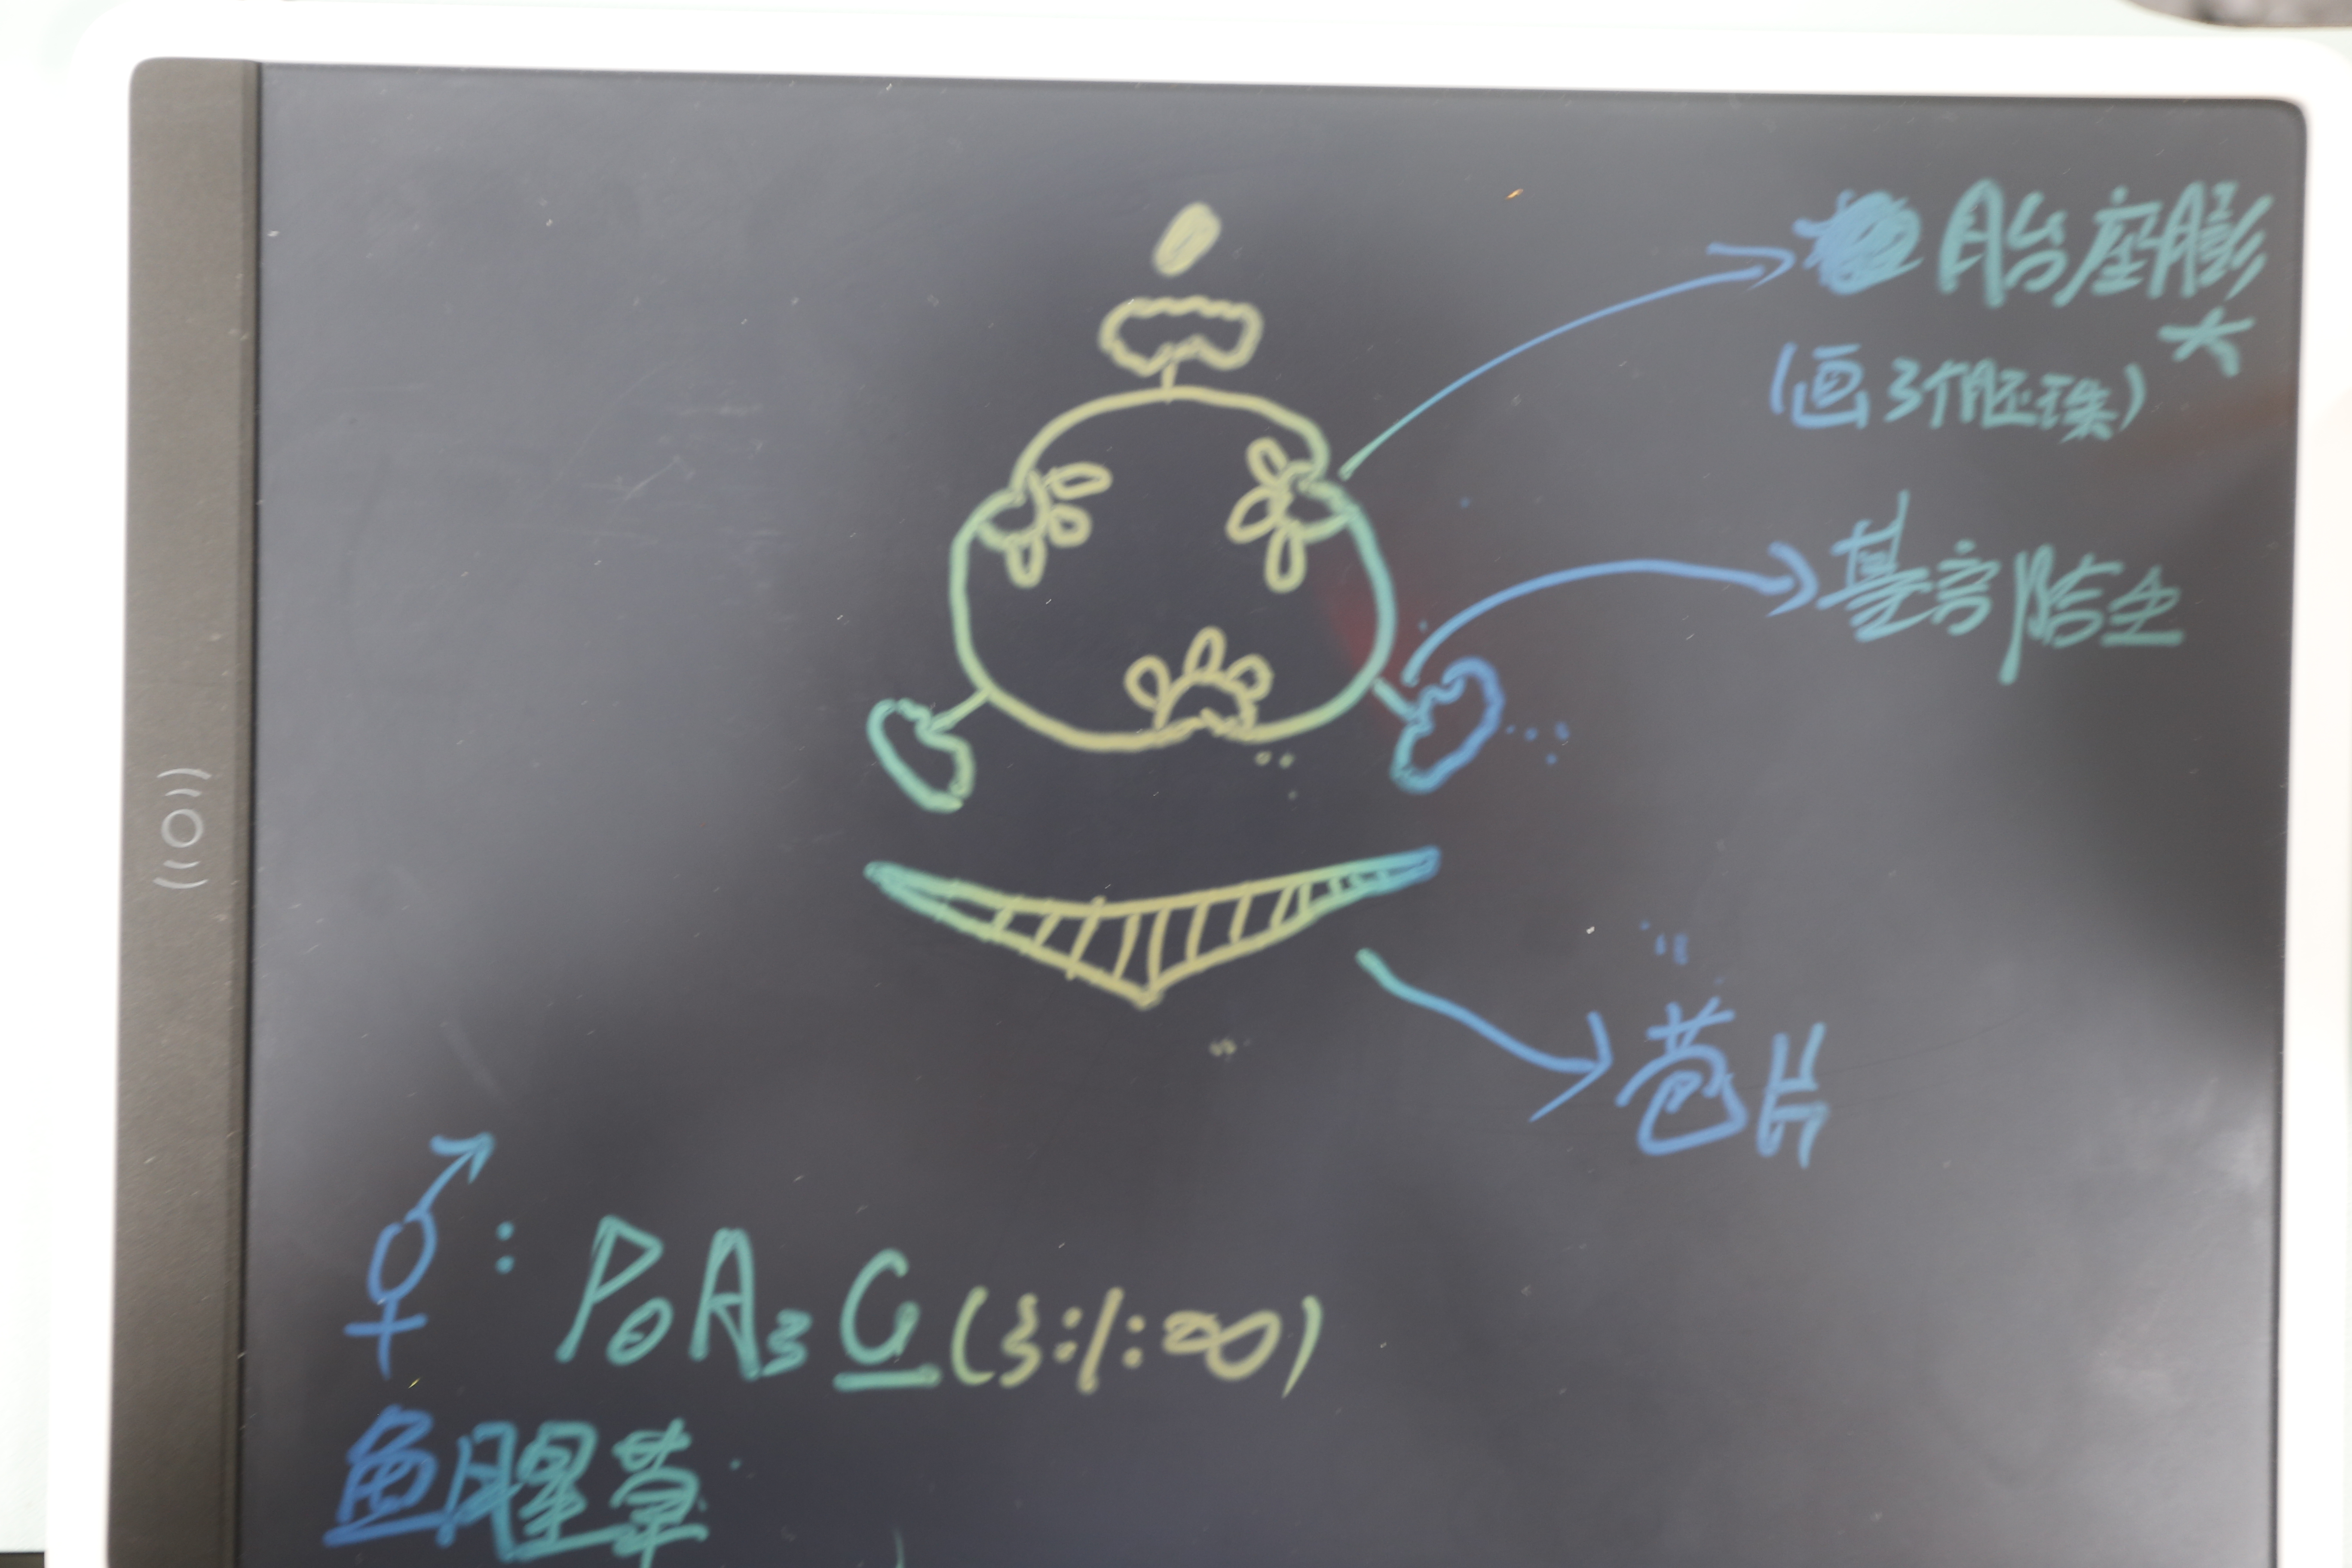 胎座膨大
(画3个胚珠)
基部贴生
苞片
⚥: P₀A₃G̲(3:1:∞)
鱼腥草